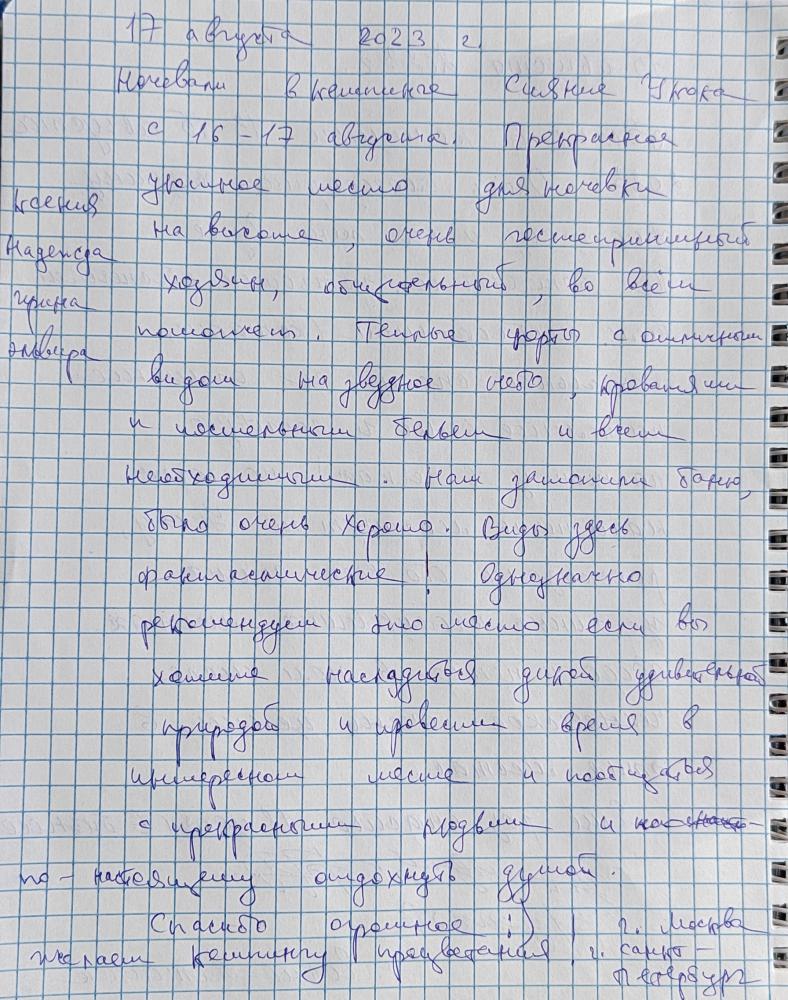 17 августа 2023 г.
Ночевали в кемпинге Сияние Укока
с 16-17 августа. Прекрасное
уютное место для ночевки
на высоте, очень гостеприимный
хозяин, общительный, во всём
поможет. Теплые юрты с отличным
видом на звездное небо, кроватями
и постельным бельем и всем
необходимым. Нам затопили баню,
было очень хорошо. Виды здесь
фантастические! Однозначно
рекомендуем это место если вы
хотите насладиться дикой удивительной
природой и провести время в
интересном месте и пообщаться
с прекрасными людьми и
по-настоящему отдохнуть душой.
Спасибо огромное :)
желаем кемпингу процветания!
Ксения
Надежда
Ирина
Эльвира
г. Москва
г. Санкт-
Петербург